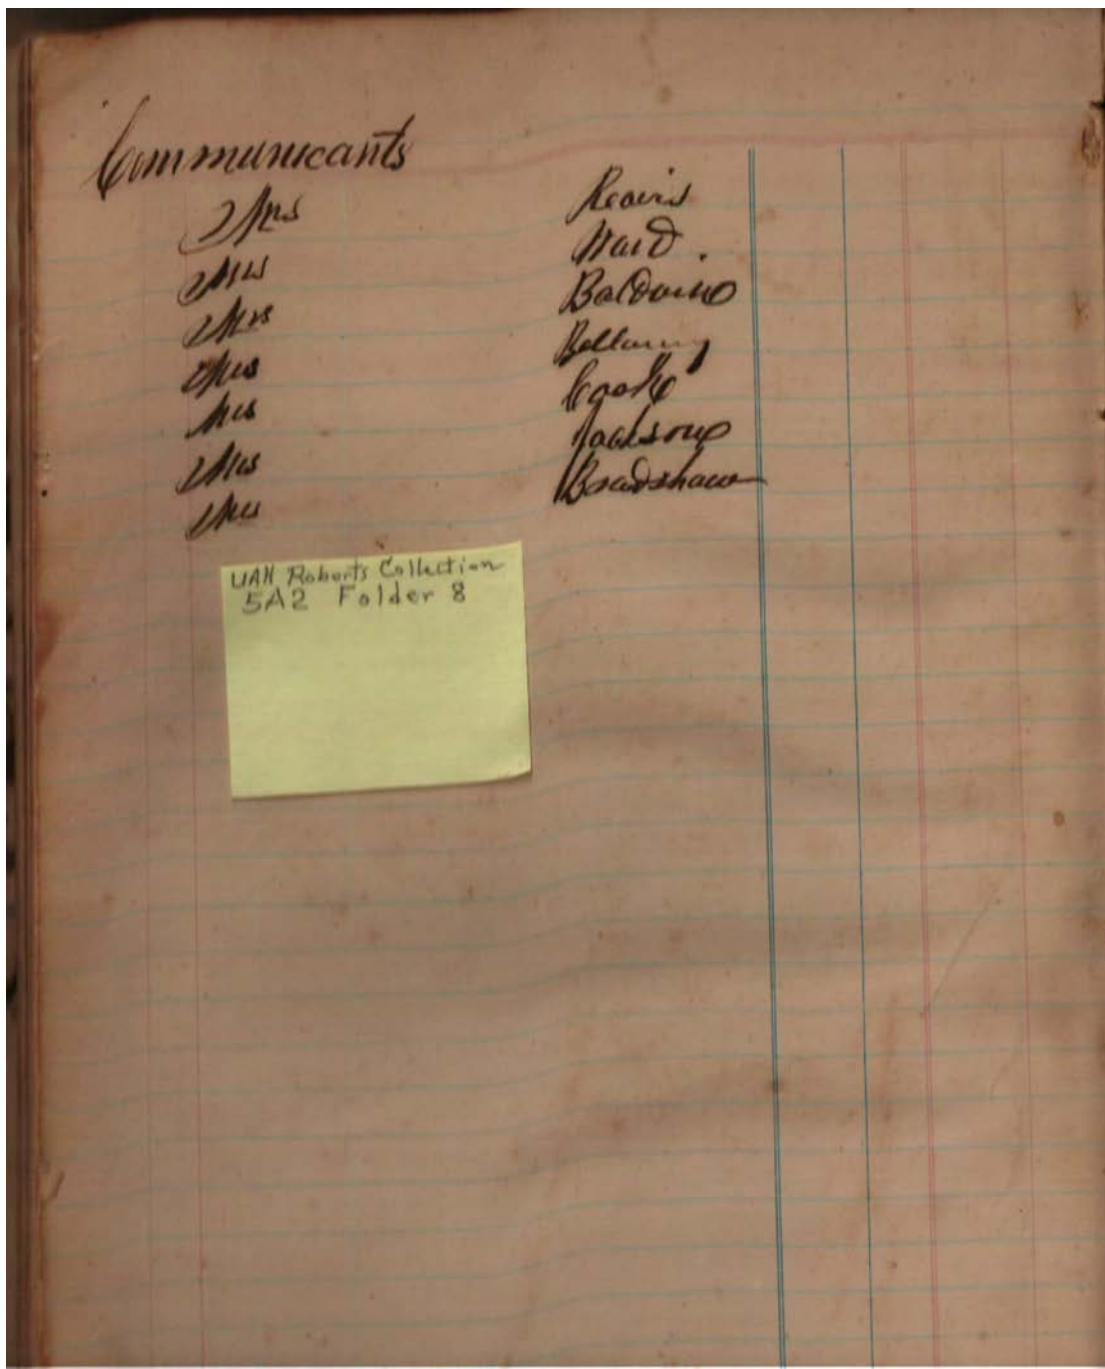 Communicants
Mrs Reavis
Mrs Ward.
Mrs Baldwin
Mrs Bellamy
Mrs Cooke
Mrs Jackson
Mrs Bradshaw
UAH Roberts Collection
5A2 Folder 8